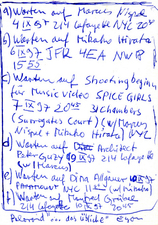 a) Warten auf Marcus Nispel
4 IX 97 214 Lafayette NYC 20
b) Warten auf Mihoko Hirata
6 IX 97 JFK 4EA NWB
15 50
c) Warten auf Shooting beginn
für Music Video SPICE GIRLS
7 IX 97 20 45 31 Chambers
(Surrogates Court) (w/Marcus
Nispel + Mihoko Hirata) NYC
d) Warten auf Architect
Peter IX 97 214 Lafayette
(w/Marcus)
e) Warten auf Dina
Paramount NYC 11 (w/Mihoko)
f) Warten auf Manfred
214 Lafayette 10 IX 97 20 45
"an das Übliche" Egon